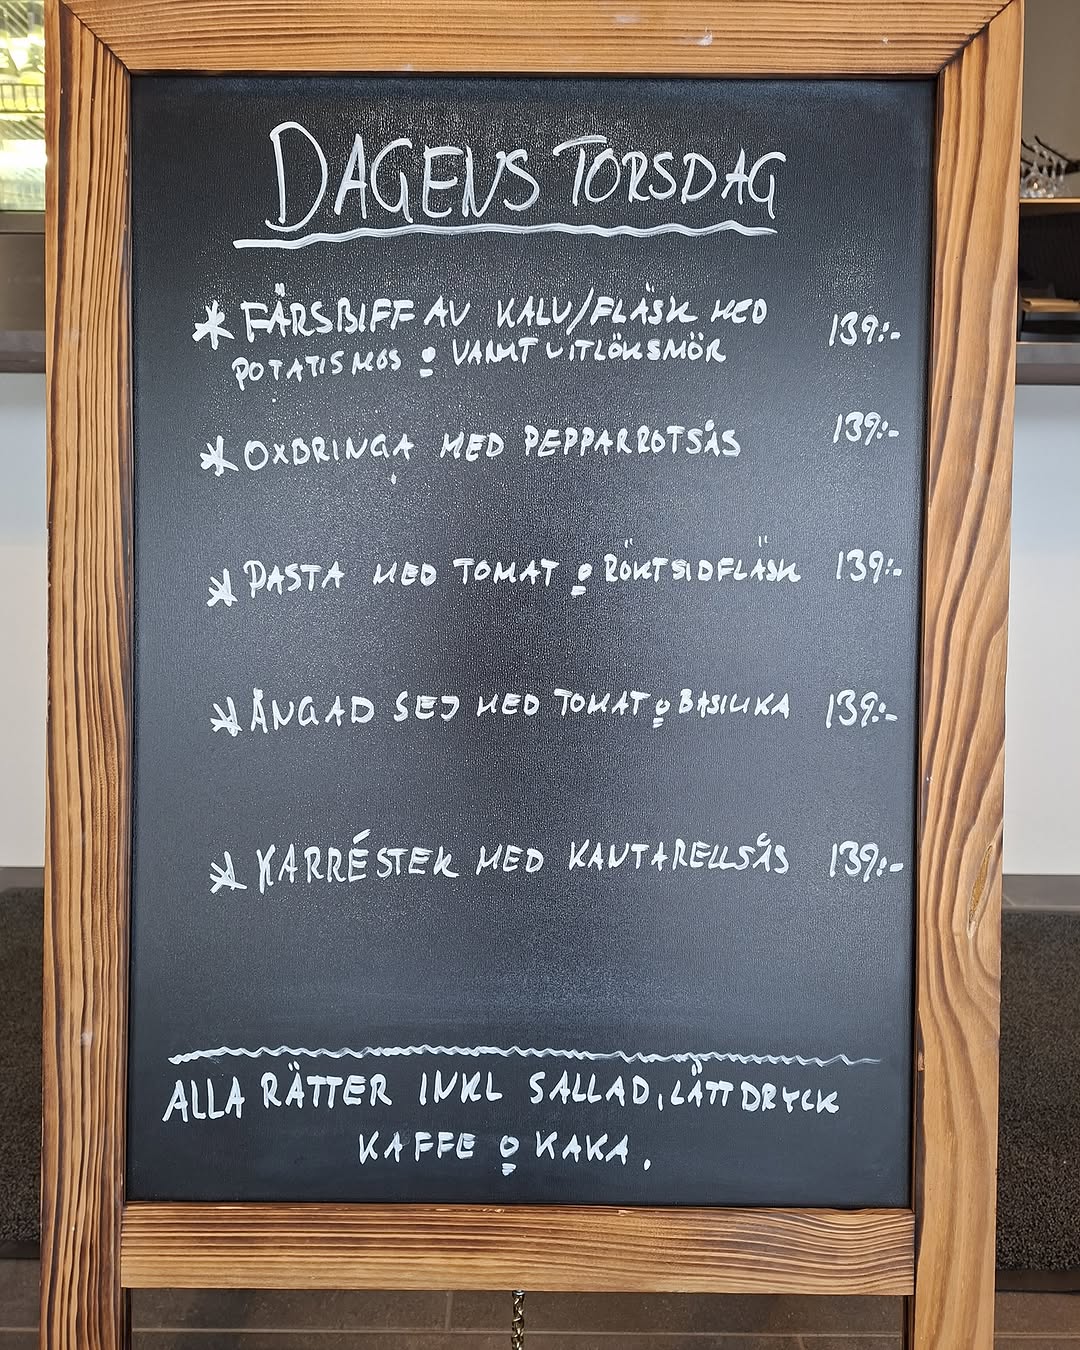 DAGENS TORSDAG
* FÄRSBIFF AV KALV/FLÄSK MED 139:-
POTATISMOS o VARMT VITLÖKSMÖR
* OXBRINGA MED PEPPARROTSÅS 139:-
* PASTA MED TOMAT o RÖKT SIDFLÄSK 139:-
* ÅNGAD SEJ MED TOMAT o BASILIKA 139:-
* KARRÉSTEK MED KANTARELLSÅS 139:-
ALLA RÄTTER INKL SALLAD, LÄTTDRYCK
KAFFE o KAKA.